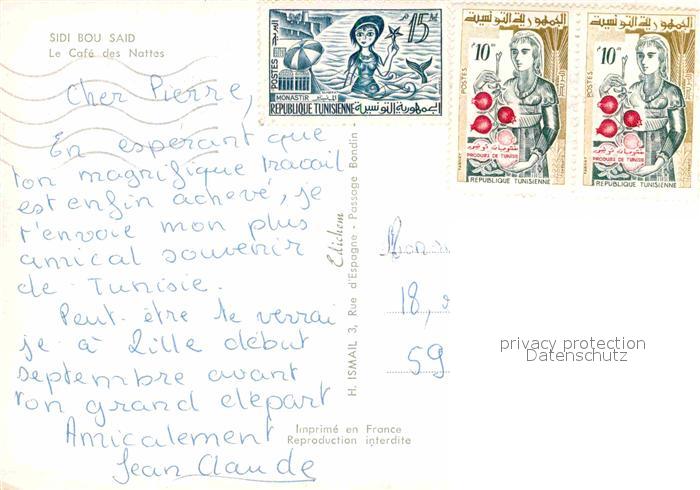 SIDI BOU SAID
Le Café des Nattes
Cher Pierre,
En espérant que
ton magnifique travail
est enfin achevé, je
t'envoie mon plus
amical souvenir
de Tunisie.
Peut être te verrai
je à Lille début
septembre avant
ton grand départ
Amicalement
Jean Claude
15 M
POSTES
MONASTIR
REPUBLIQUE TUNISIENNE الجمهورية التونسية
الجمهورية التونسية
10 M
POSTES
PRODUITS DE TUNISIE
REPUBLIQUE TUNISIENNE
الجمهورية التونسية
10 M
POSTES
PRODUITS DE TUNISIE
REPUBLIQUE TUNISIENNE
H. ISMAIL 3, Rue d'Espagne - Passage Bondin -
Edichem
18,
59
Imprimé en France
Reproduction interdite
privacy protection
Datenschutz